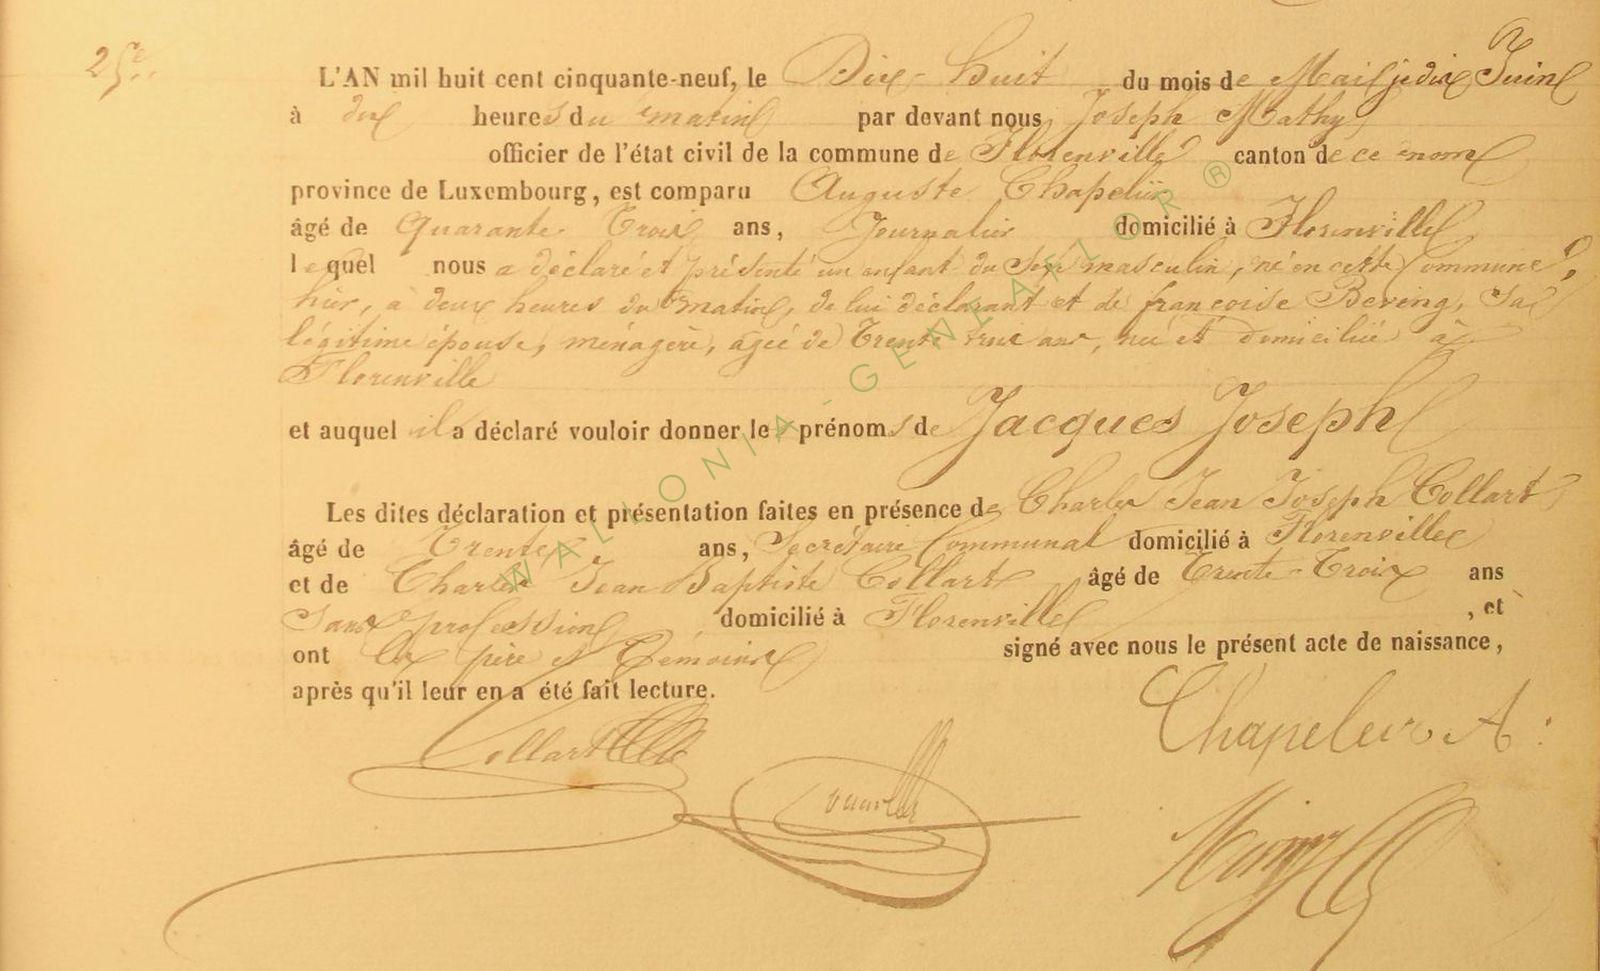 25e
L'AN mil huit cent cinquante-neuf, le Dix-huit du mois de Mai, je dis Juin
à dix heures du matin par devant nous Joseph Mathy
officier de l'état civil de la commune de Florenville canton de ce nom
province de Luxembourg, est comparu Auguste Chapelier
âgé de Quarante-Trois ans, Journalier domicilié à Florenville
lequel nous a déclaré et présenté un enfant du sexe masculin, né en cette Commune,
hier, à deux heures du matin, de lui déclarant et de françoise Bering, sa
légitime épouse, ménagère, âgée de Trente ans, née et domiciliée à
Florenville
et auquel il a déclaré vouloir donner le prénoms de Jacques Joseph
Les dites déclaration et présentation faites en présence de Charles Jean Joseph Collart
âgé de Trente ans, Secrétaire Communal domicilié à Florenville
et de Charles Jean Baptiste Collart âgé de Trente-Trois ans
Sans profession domicilié à Florenville, et
ont les père et Témoins signé avec nous le présent acte de naissance,
après qu'il leur en a été fait lecture.
Chapelier A:
Collart
WALLONIA-GENEALOR ®